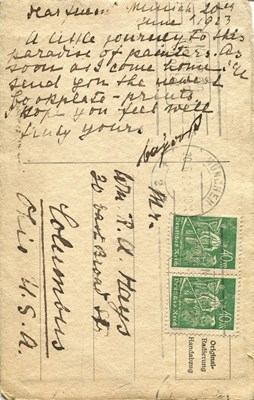 Dear friend Munich 20th
June 1923
A little journey to this
paradise of painters. As
soon as I come home I'll
send you the newest
bookplate-prints
I hope you feel well
truly yours
MÜNCHEN
Mr.
Wm. P. A. Hays
30 East Broad St.
Columbus
Ohio U.S.A.
40M
Deutsches Reich
40M
Deutsches Reich
Original-
Radierung
Handabzug